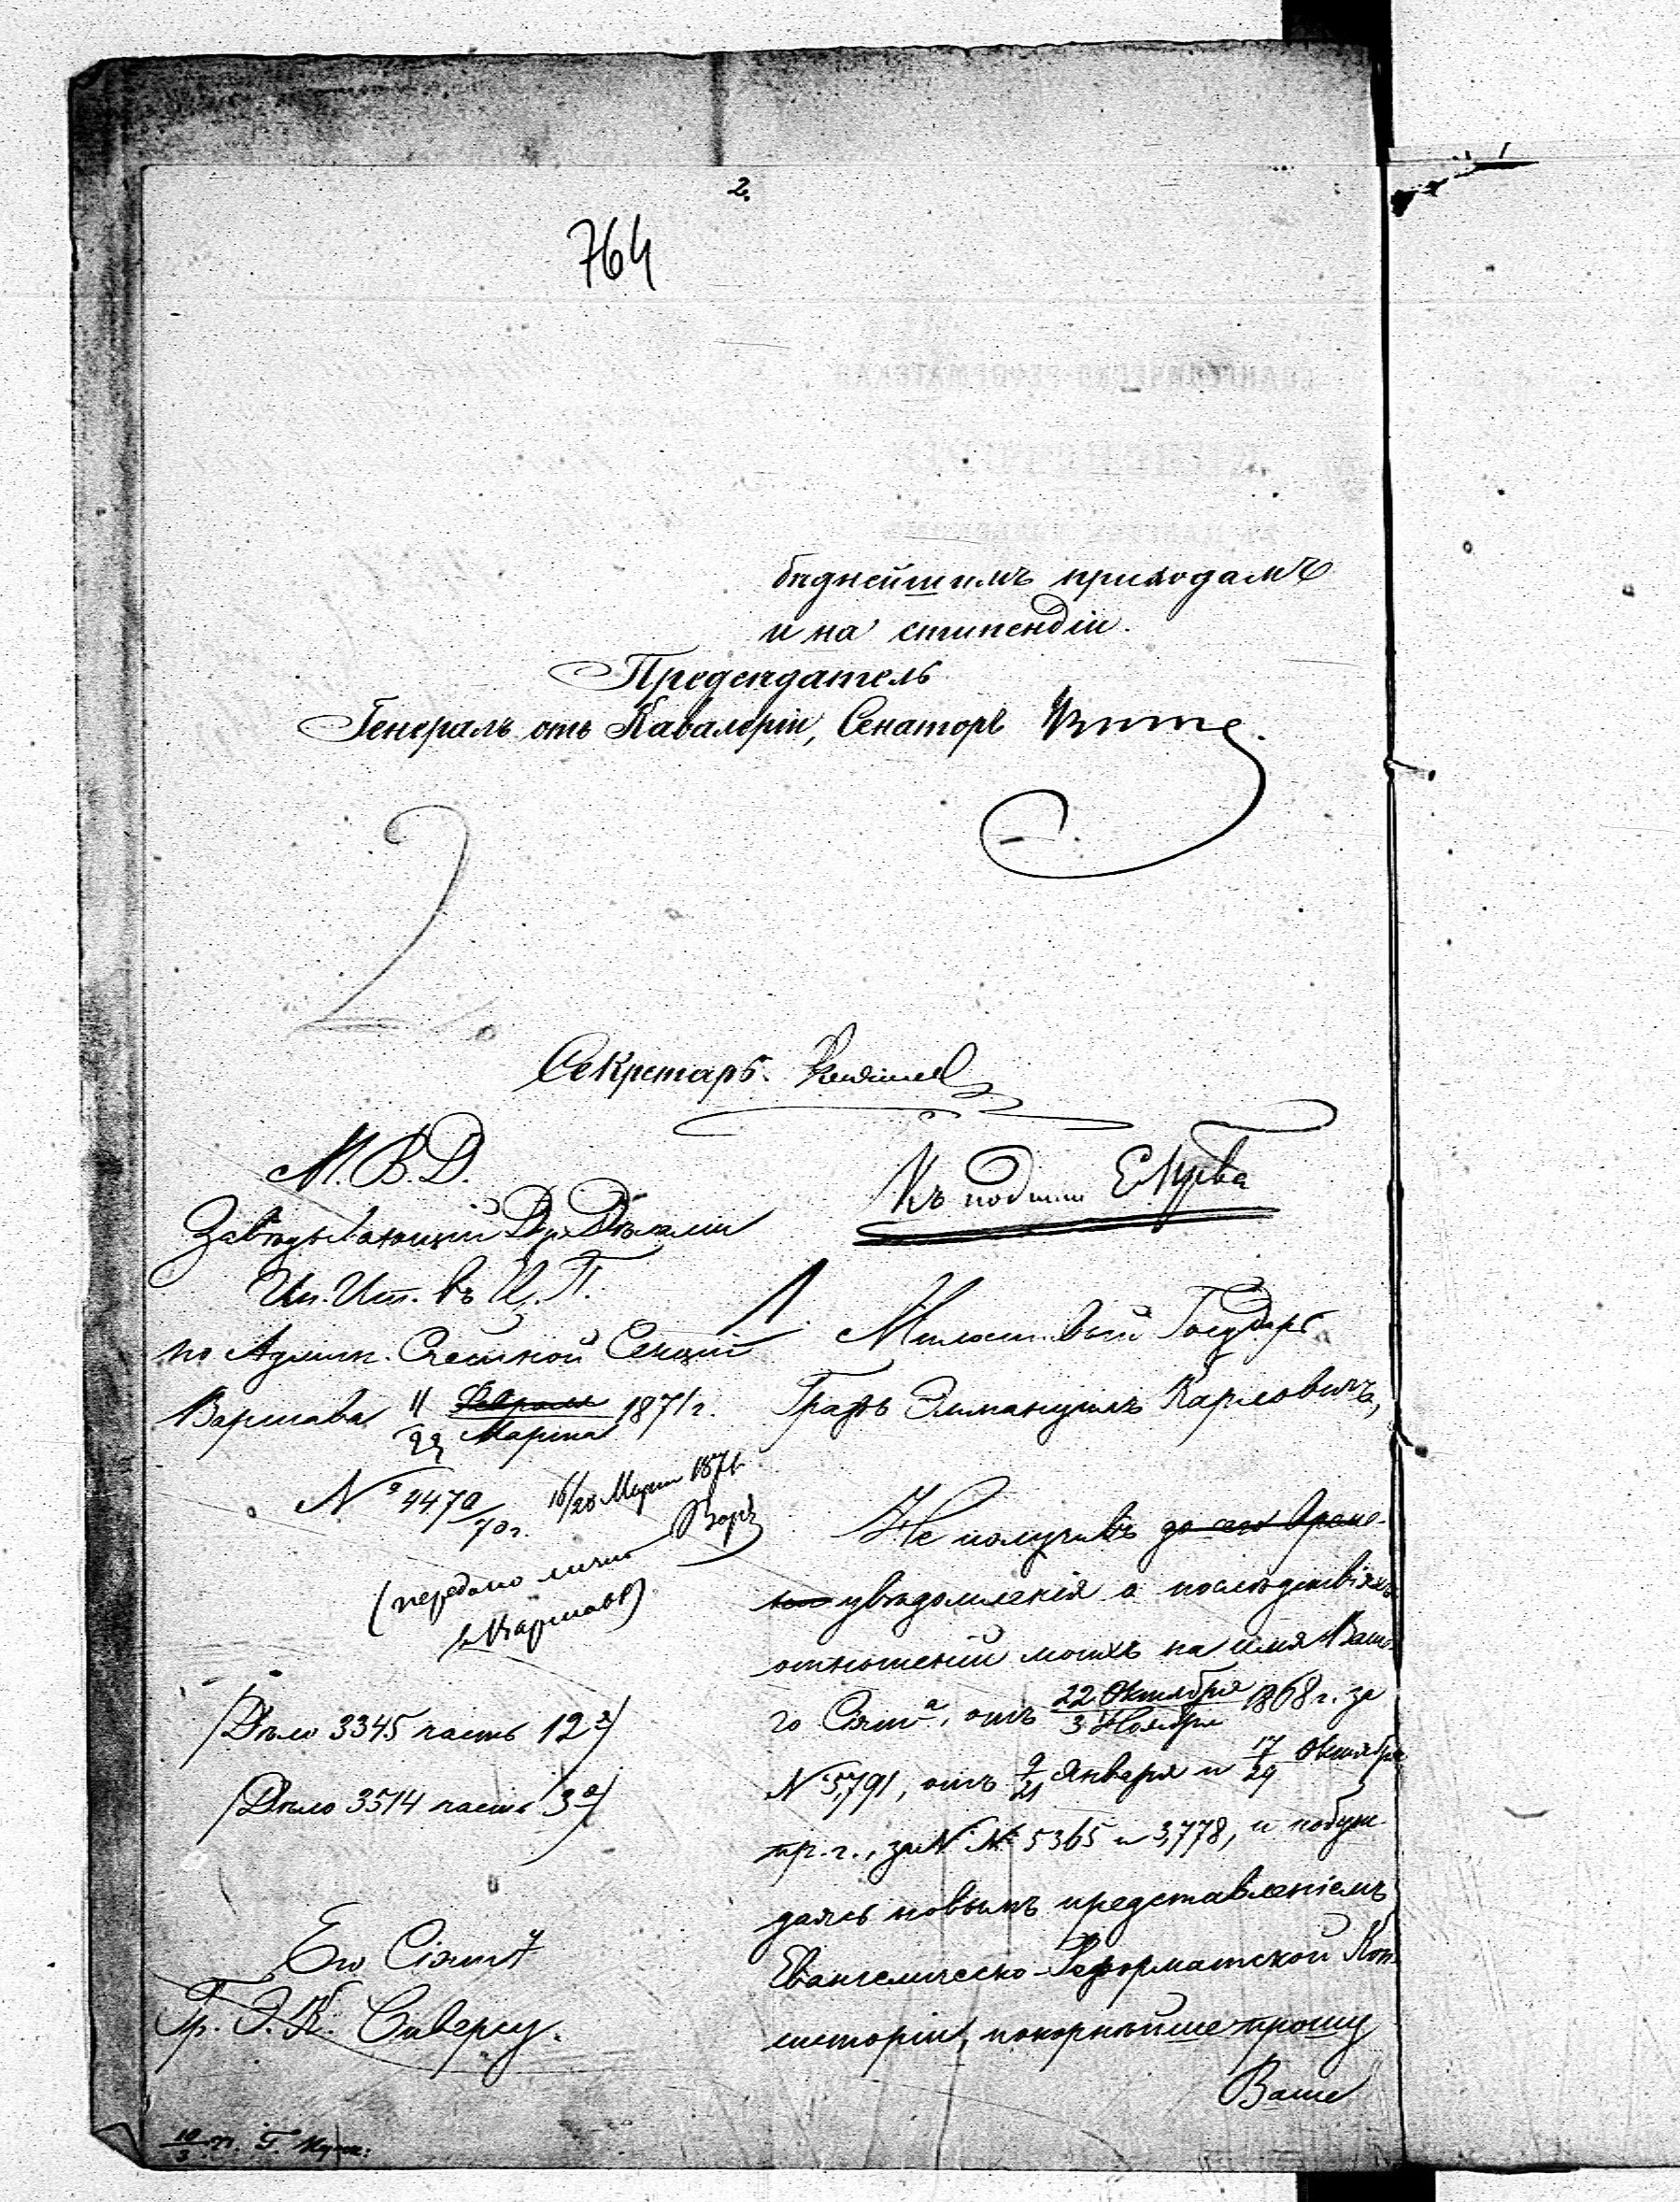 2.
764
бѣднѣйшимъ приходамъ
и на стипендіи.
Предсѣдатель
Генералъ отъ Кавалеріи, Сенаторъ Витте.
2
Секретарь.
М.В.Д.
Къ подписи
Завѣдывающій Дух. Дѣлами
Ин. Исп. въ Ц. П.
по Админ. Счетной Секціи
Варшава 11 Февраля 1871 г.
23 Марта
№ 4470/70 г.
16/28 Марта 1871
(передано лично
в Варшавѣ)
(Дѣло 3345 часть 12я)
(Дѣло 3514 часть 3я)
Его Сіят-у
Гр. Э. К. Сиверсу.
1.
Милостивый Государь
Графъ Эммануилъ Карловичъ,
Не получивъ до сего време-
ни увѣдомленія о послѣдствіяхъ
отношеній моихъ на имя Ваше-
го Сіят-а, отъ 22 Октября / 3 Ноября 1868 г. за
№ 5,791, отъ 9/21 Января и 17/29 Октября
пр. г., за №№ 5365 и 3,778, и побуж-
даясь новымъ представленіемъ
Евангелическо-Реформатской Кон-
систоріи, покорнѣйше прошу
Ваше